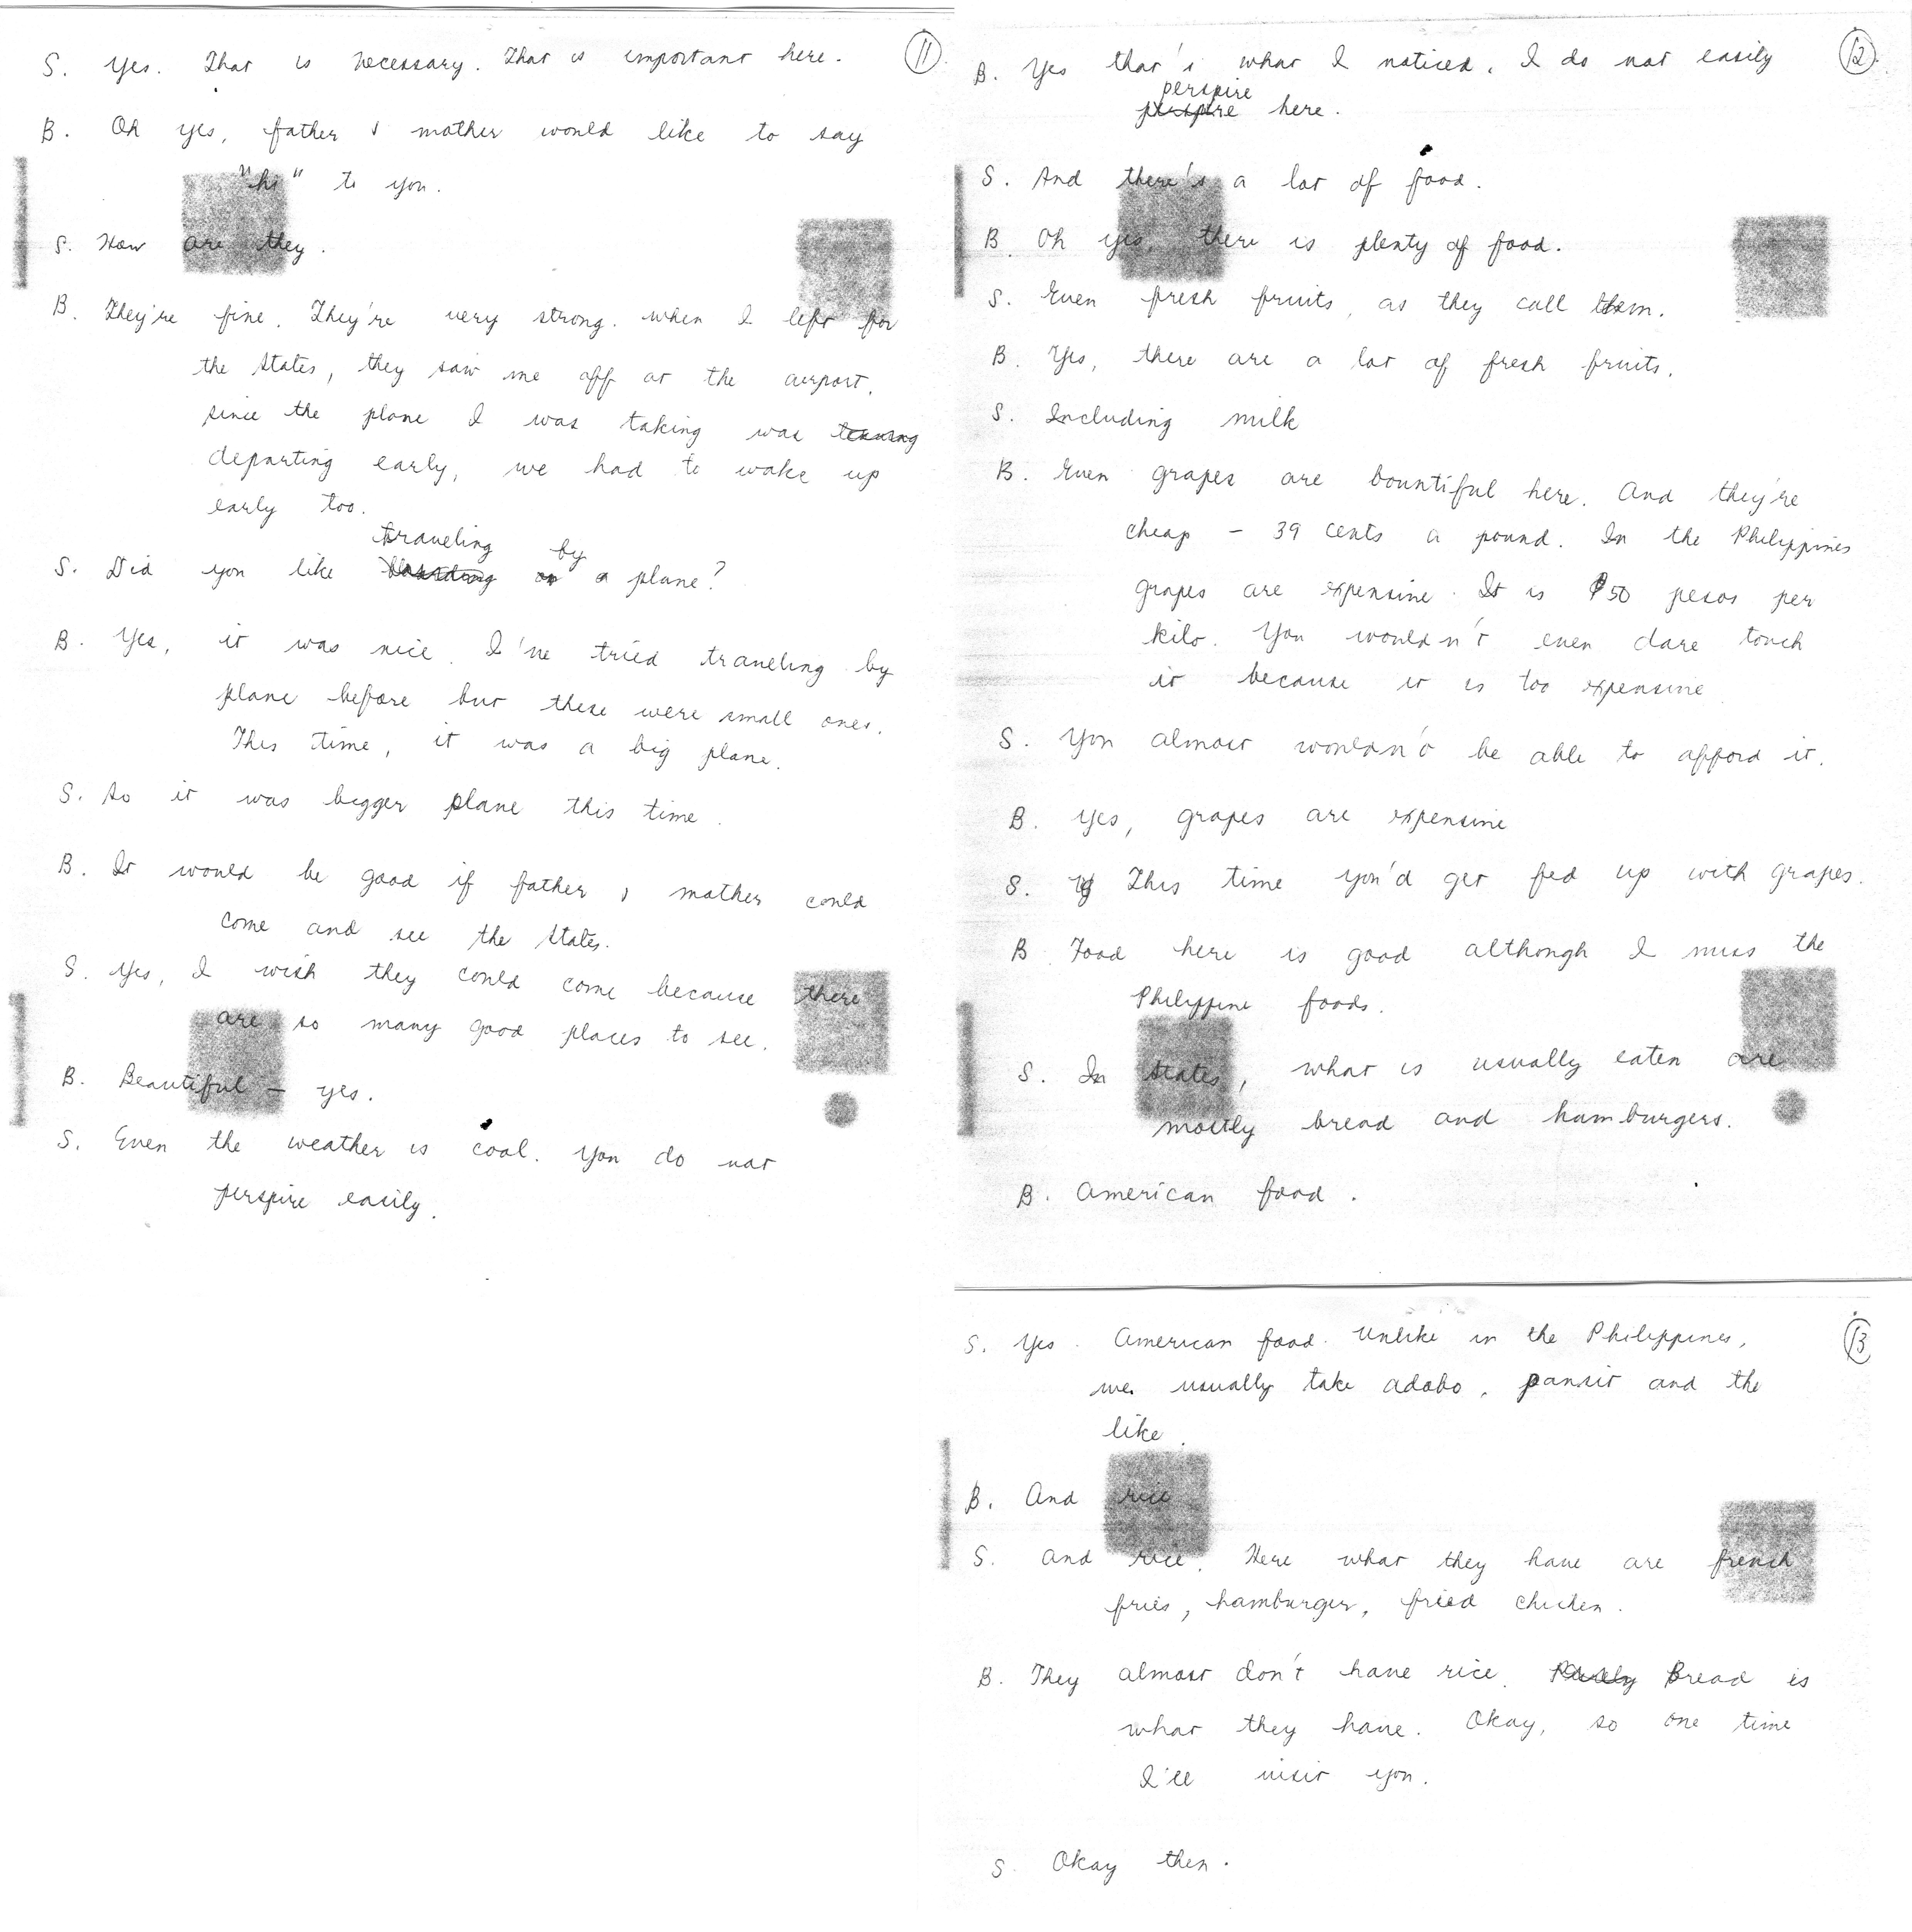 S. Yes. That is necessary. That is important here. 11
B. Oh yes, father & mother would like to say
"hi" to you.
S. How are they.
B. They're fine. They're very strong. When I left for
the States, they saw me off at the airport.
Since the plane I was taking was
departing early, we had to wake up
early too.
traveling by
S. Did you like boarding on a plane?
B. Yes, it was nice. I've tried traveling by
plane before but these were small ones.
This time, it was a big plane.
S. So it was bigger plane this time.
B. It would be good if father & mother could
come and see the States.
S. Yes, I wish they could come because there
are so many good places to see.
B. Beautiful – yes.
S. Even the weather is cool. You do not
perspire easily.
B. Yes that's what I noticed. I do not easily 12
perspire
perspire here.
S. And there's a lot of food.
B. Oh yes, there is plenty of food.
S. Even fresh fruits, as they call them.
B. Yes, there are a lot of fresh fruits.
S. Including milk
B. Even grapes are bountiful here. And they're
cheap – 39 cents a pound. In the Philippines
grapes are expensive. It is ₱50 pesos per
kilo. You wouldn't even dare touch
it because it is too expensive
S. You almost wouldn't be able to afford it.
B. Yes, grapes are expensive
S. This time you'd get fed up with grapes.
B. Food here is good although I miss the
Philippine foods.
S. In States, what is usually eaten are
mostly bread and hamburgers.
B. American food.
S. Yes. American food. Unlike in the Philippines, 13
we usually take adobo, pansit and the
like.
B. And rice
S. And rice. Here what they have are french
fries, hamburger, fried chicken.
B. They almost don't have rice. Bread is
what they have. Okay, so one time
I'll visit you.
S. Okay then.